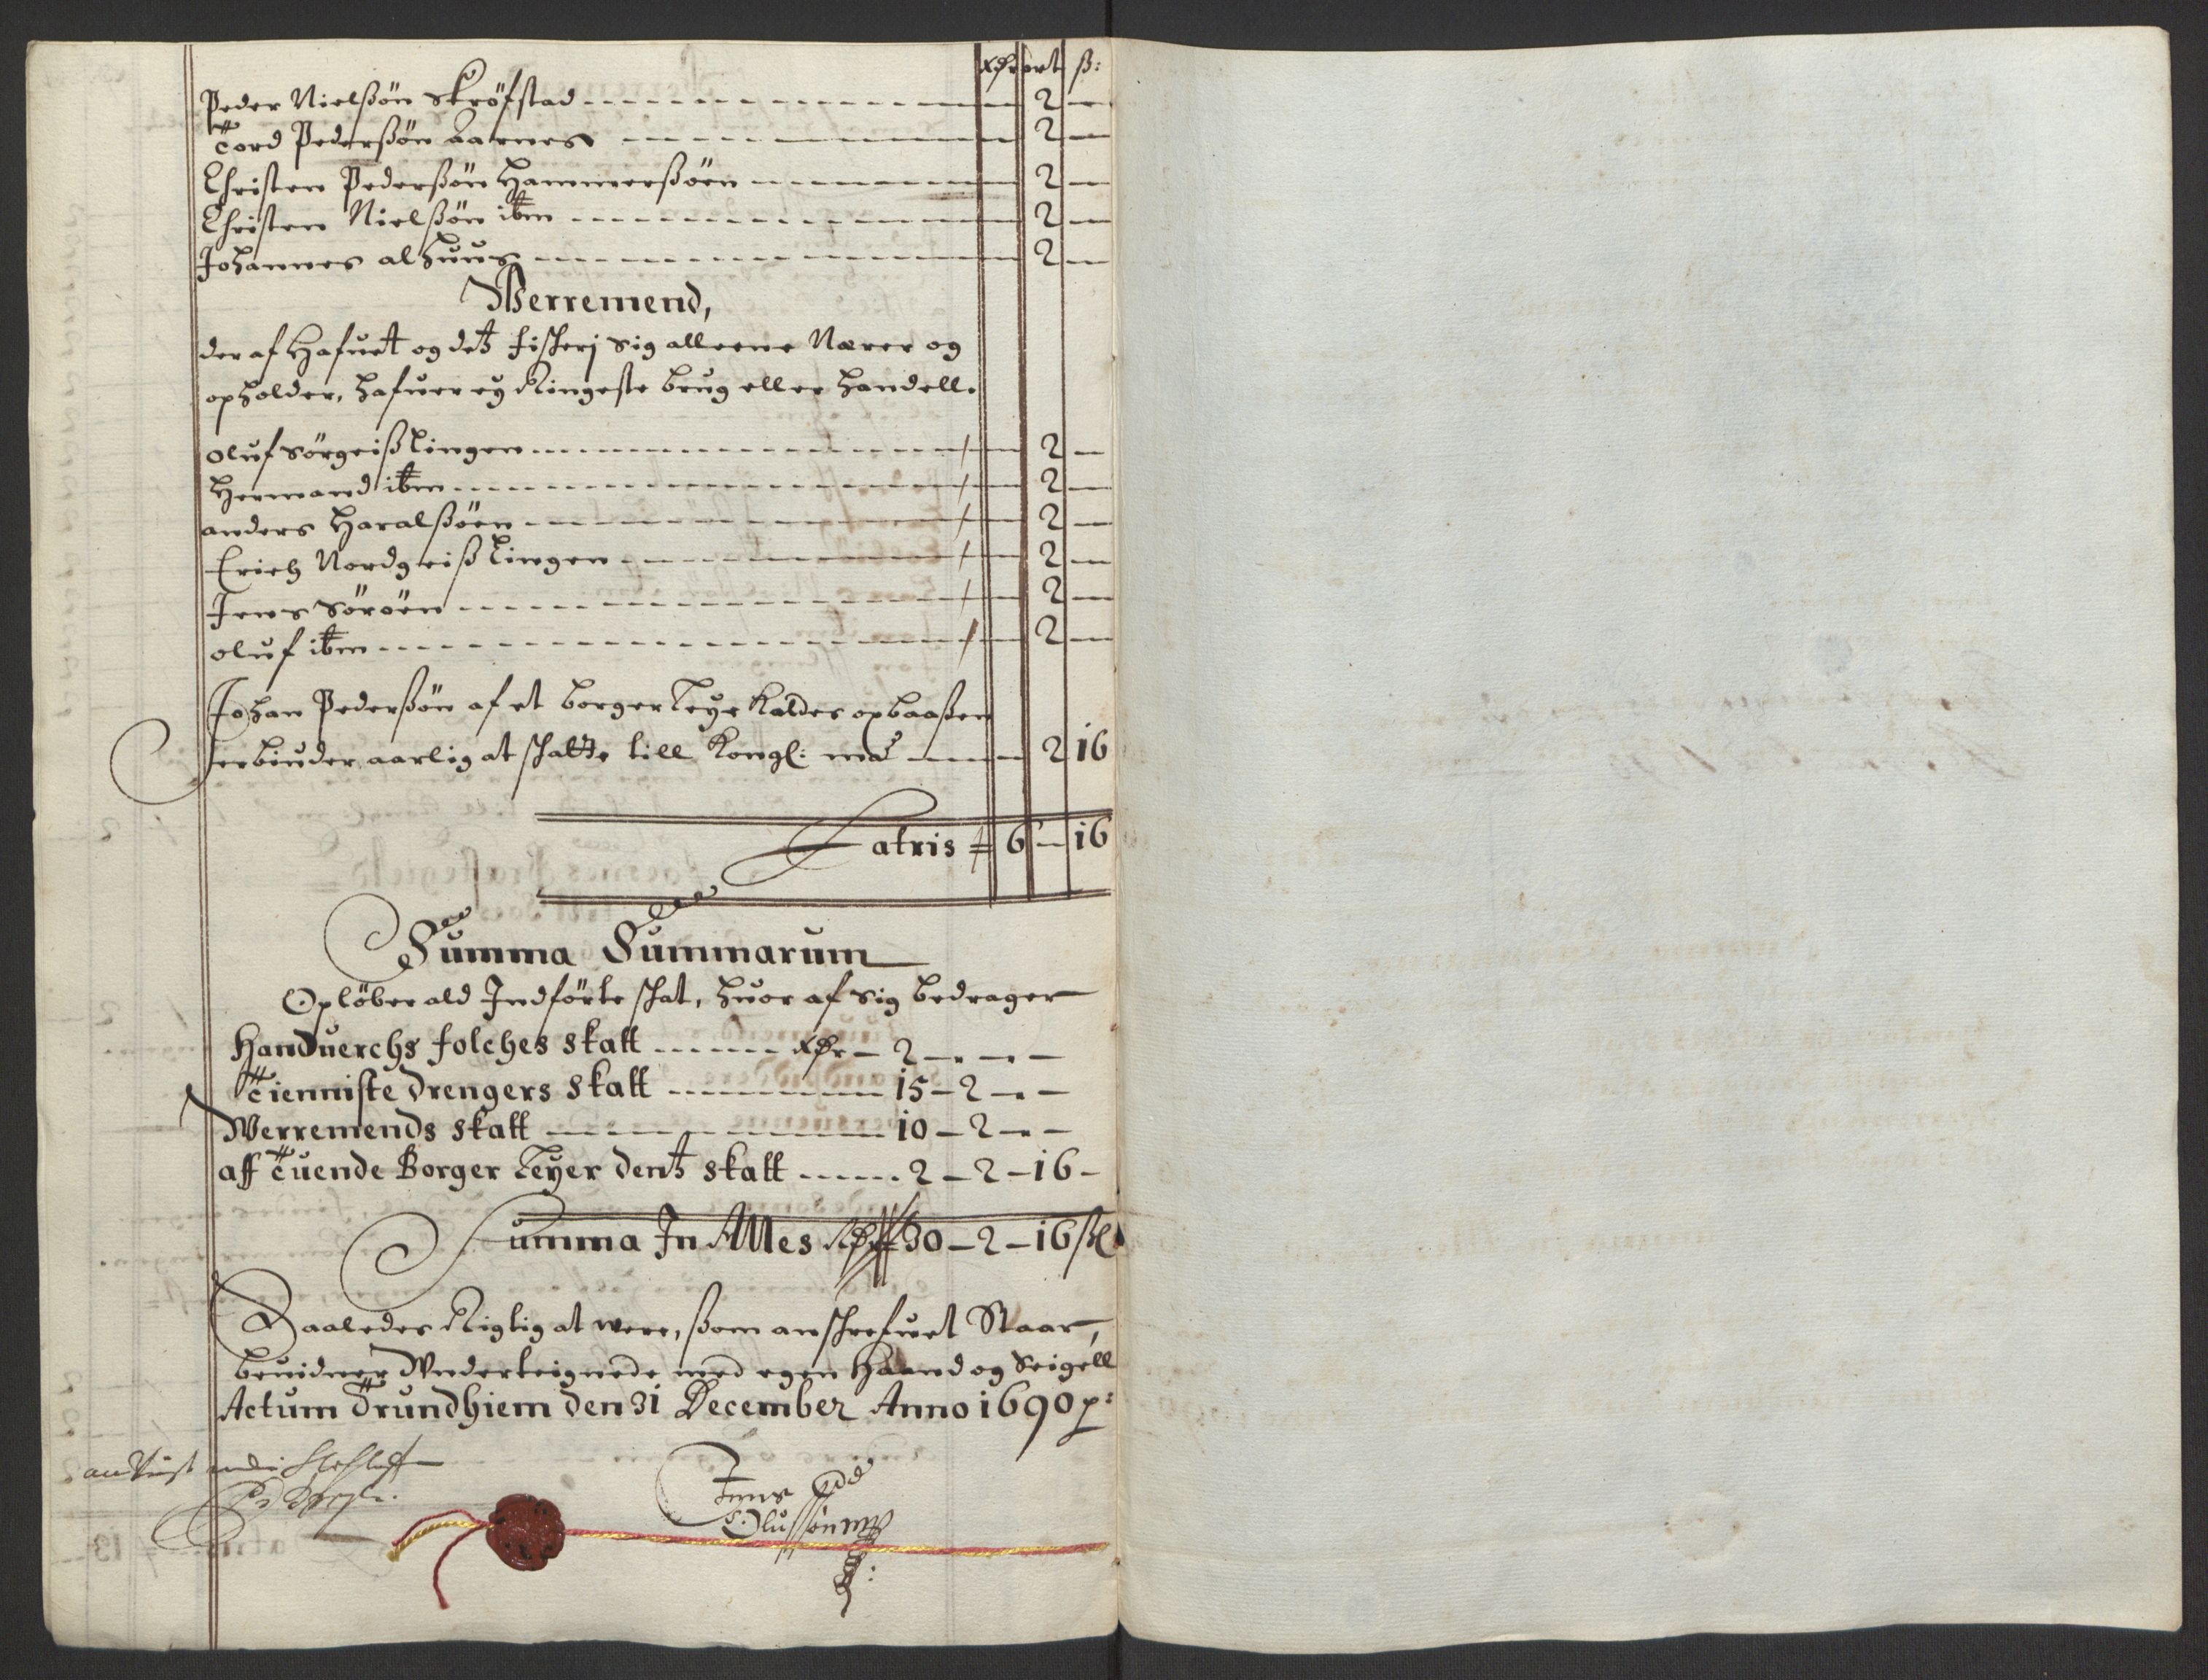 Rdr ort ß:
Peder Nielßøn Skrøfstad 2 —
Tord Pederßøn Aarnes 2 —
Christen Pederßøn Hammerßøen 2 —
Christen Nielßøn ibm 2 —
Johannes alhuus 2 —
Werremend,
der af Hafuet og det fischerj sig alleene Nærer og
opholder, hafuer ey Ringeste brug eller handell.
oluf Sørgeißlingen 2 —
Hermand ibm 2 —
anders Haralßøen 2 —
Erich Nordgeißlingen 2 —
Jens Sørøen 2 —
oluf ibm 2 —
Johan Pederßøn af et borger leye kaldes opbaaßen
erbiuder aarlig at schatte till Kongl: ma 2 16
Latris 6 — 16
Summa Summarum
Opløber ald Indførte schat, huor af sig bedrager
Handuerchs folches skatt Rdr — 2 — —
Tienniste drengers skatt 15 — 2 — —
Werremends skatt 10 — 2 — —
aff Tuende Borger Leyer dent skatt 2 — 2 — 16 —
Summa In Alles Rdr 30 — 2 — 16 ßl
Saaledes Rigtig at were, ßom anschrefuet Staar,
beuidner Underteignede med egen Haand og Seigell
Actum Trundhiem den 31 December Anno 1690 p:
Jens
Olufsøn